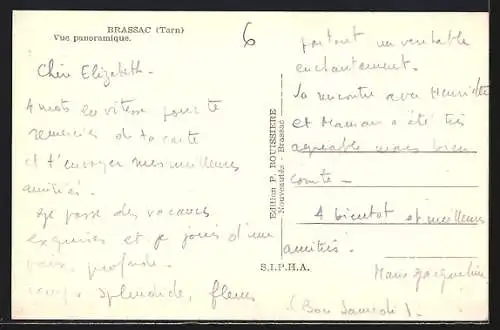 BRASSAC (Tarn)
Vue panoramique.
6
Chère Elizabeth -
4 mots en vitesse pour te
remercier de ta carte
et t'envoyer mes meilleures
amitiés.
Je passe des vacances
exquises et je jouis d'une
paix profonde.
temps splendide, fleurs
Edition P. ROUISSIERE
Nouveautés - Brassac
S.I.P.H.A.
partout un véritable
enchantement.
La rencontre avec Henriette
et Maman a été très
agréable mais bien
courte -
A bientôt et meilleures
amitiés.
Marie Jacqueline
(Bon Samedi).